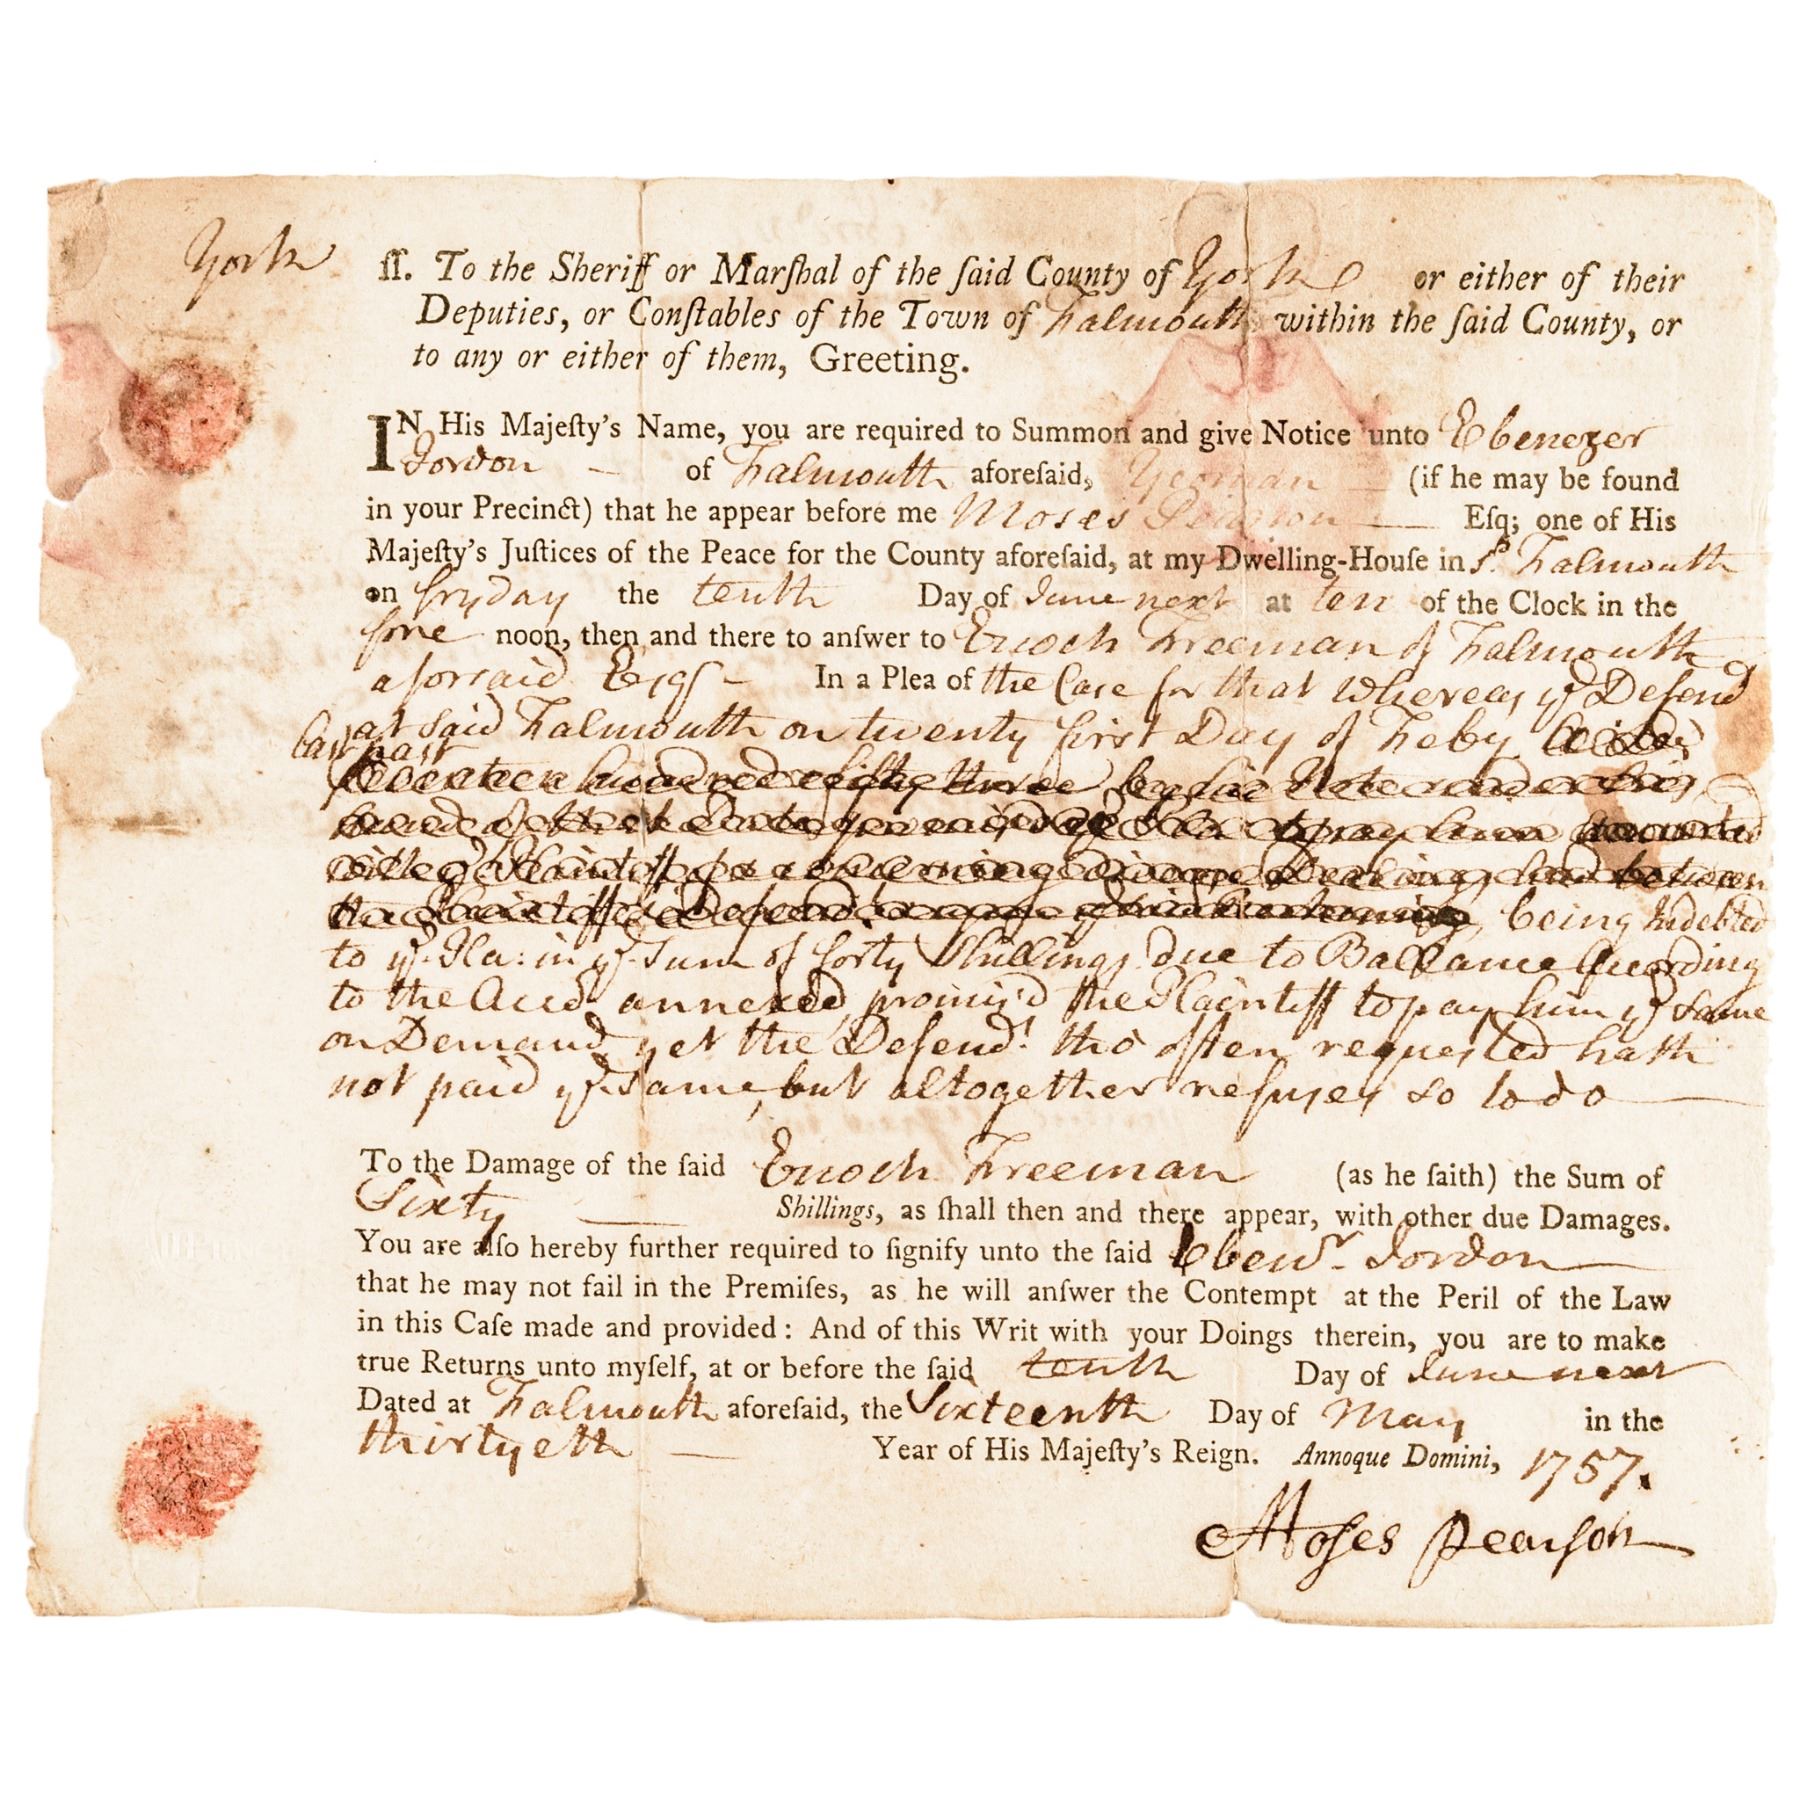 York ſſ. To the Sheriff or Marſhal of the ſaid County of York or either of their
Deputies, or Conſtables of the Town of Falmouth within the ſaid County, or
to any or either of them, Greeting.
IN His Majeſty's Name, you are required to Summon and give Notice unto Ebenezer
Jordon of Falmouth aforeſaid, Yeoman (if he may be found
in your Precinct) that he appear before me Moses Pearson Eſq; one of His
Majeſty's Juſtices of the Peace for the County aforeſaid, at my Dwelling-Houſe in sd. Falmouth
on fryday the tenth Day of June next at ten of the Clock in the
fore noon, then and there to anſwer to Enoch Freeman of Falmouth
aforsaid Esqr In a Plea of the Case for that Whereas ye Defend
at said Falmouth on twenty first Day of Feby
last past
hundred fifty three by his Note under his
hand of that date
between
the Plaintiff being Indebted
to ye. Pla: in ye. Sum of forty Shillings due to Ballance According
to the Accd. annexed promis'd the Plaintiff to pay him ye same
on Demand, yet the Defendt. tho often requested hath
not paid ye. Same, but altogether refuses so to do
To the Damage of the ſaid Enoch Freeman (as he ſaith) the Sum of
Sixty Shillings, as ſhall then and there appear, with other due Damages.
You are alſo hereby further required to ſignify unto the ſaid Ebenr. Jordon
that he may not fail in the Premiſes, as he will anſwer the Contempt at the Peril of the Law
in this Caſe made and provided: And of this Writ with your Doings therein, you are to make
true Returns unto myſelf, at or before the ſaid tenth Day of June next
Dated at Falmouth aforeſaid, the Sixteenth Day of May in the
thirtyeth Year of His Majeſty's Reign. Annoque Domini, 1757.
Moses Pearson